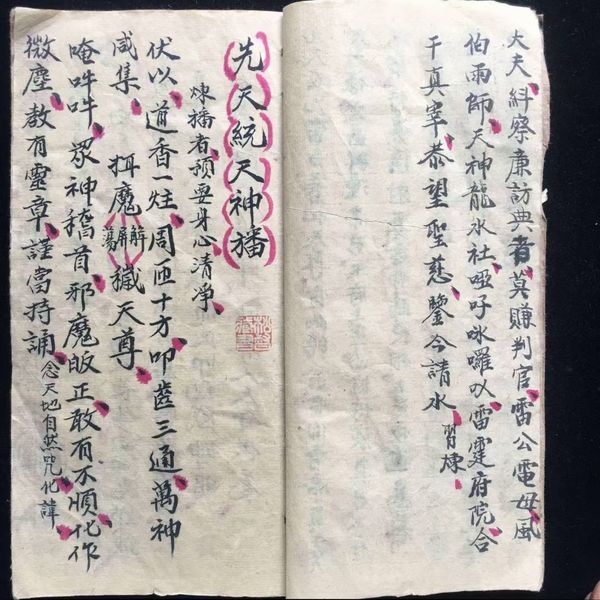 大夫糾察廉訪典者莫賺判官雷公電母風
伯雨師天神龍水社啞吽咏囉以雷霆府院合
干真宰恭望聖慈鑒今請水習煉
先天統天神旛
煉旛者預要身心清淨
伏以道香一炷周匝十方叩齒三通萬神
咸集揖魔蕩屏解穢天尊
唵吽吽眾神稽首邪魔皈正敢有不順化作
微塵教有靈章謹當持誦念天地自然咒化諱